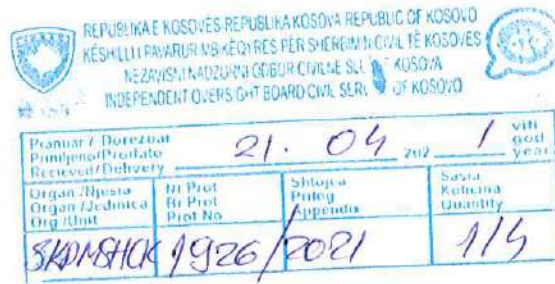 REPUBLIKA E KOSOVËS-REPUBLIKA KOSOVA REPUBLIC OF KOSOVO
KËSHILLI I PAVARUR MBIKËQYRËS PËR SHËRBIMIN CIVIL TË KOSOVËS
NEZAVISNI NADZORNI ODBOR CIVILNE KOSOVA
INDEPENDENT OVERSIGHT BOARD CIVIL OF KOSOVO
Pranuar / Dorëzuar
Primljeno/Predato
Recieved/Delivery 21. 04 202 1 viti god year
Organ /Njësia
Organ /Jedinica
Org /Unit
Nr Prot
Br Prot
Prot No
Shtojca
Prilog
Appendix
Sasia
Kolicina
Quantity
1926/2021